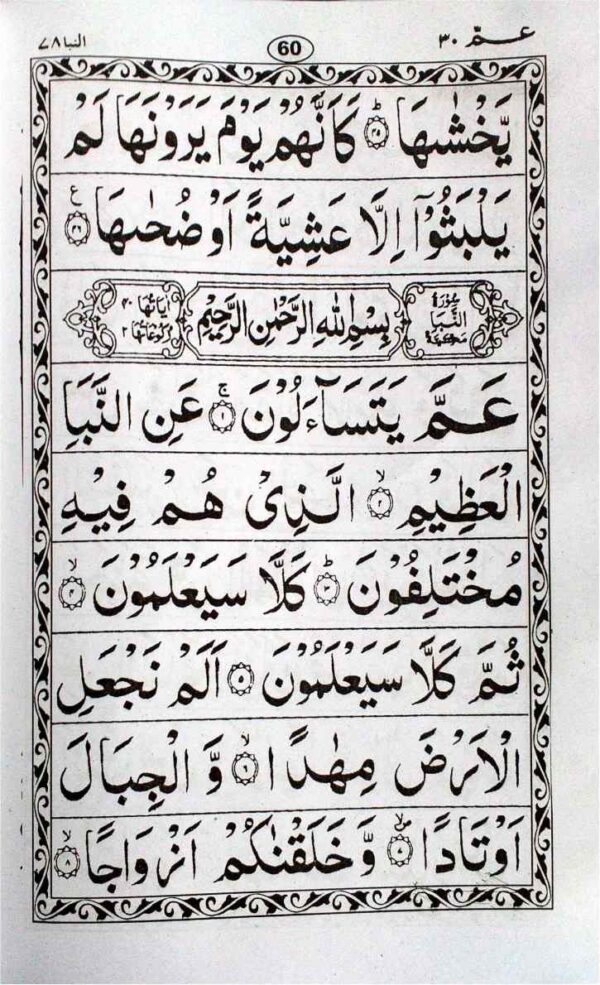 عـمّ ٣٠
60
النبا ٧٨
يَّخْشٰىهَا ؕ ﴿٤٥﴾ كَاَنَّهُمْ يَوْمَ يَرَوْنَهَا لَمْ
يَلْبَثُوْۤا اِلَّا عَشِيَّةً اَوْ ضُحٰىهَا ﴿٤٦﴾ ع
سُوْرَةُ النَّبَا مَكِّيَّةٌ
بِسْمِ اللّٰهِ الرَّحْمٰنِ الرَّحِيْمِ
اٰيَاتُهَا ٤٠ رُكُوْعَاتُهَا ٢
عَمَّ يَتَسَآءَلُوْنَ ۚ ﴿١﴾ عَنِ النَّبَاِ
الْعَظِيْمِ ۙ ﴿٢﴾ الَّذِىْ هُمْ فِيْهِ
مُخْتَلِفُوْنَ ؕ ﴿٣﴾ كَلَّا سَيَعْلَمُوْنَ ۙ ﴿٤﴾
ثُمَّ كَلَّا سَيَعْلَمُوْنَ ﴿٥﴾ اَلَمْ نَجْعَلِ
الْاَرْضَ مِهٰدًا ۙ ﴿٦﴾ وَّ الْجِبَالَ
اَوْتَادًا ﴿٧﴾ وَّخَلَقْنٰكُمْ اَزْوَاجًا ۙ ﴿٨﴾